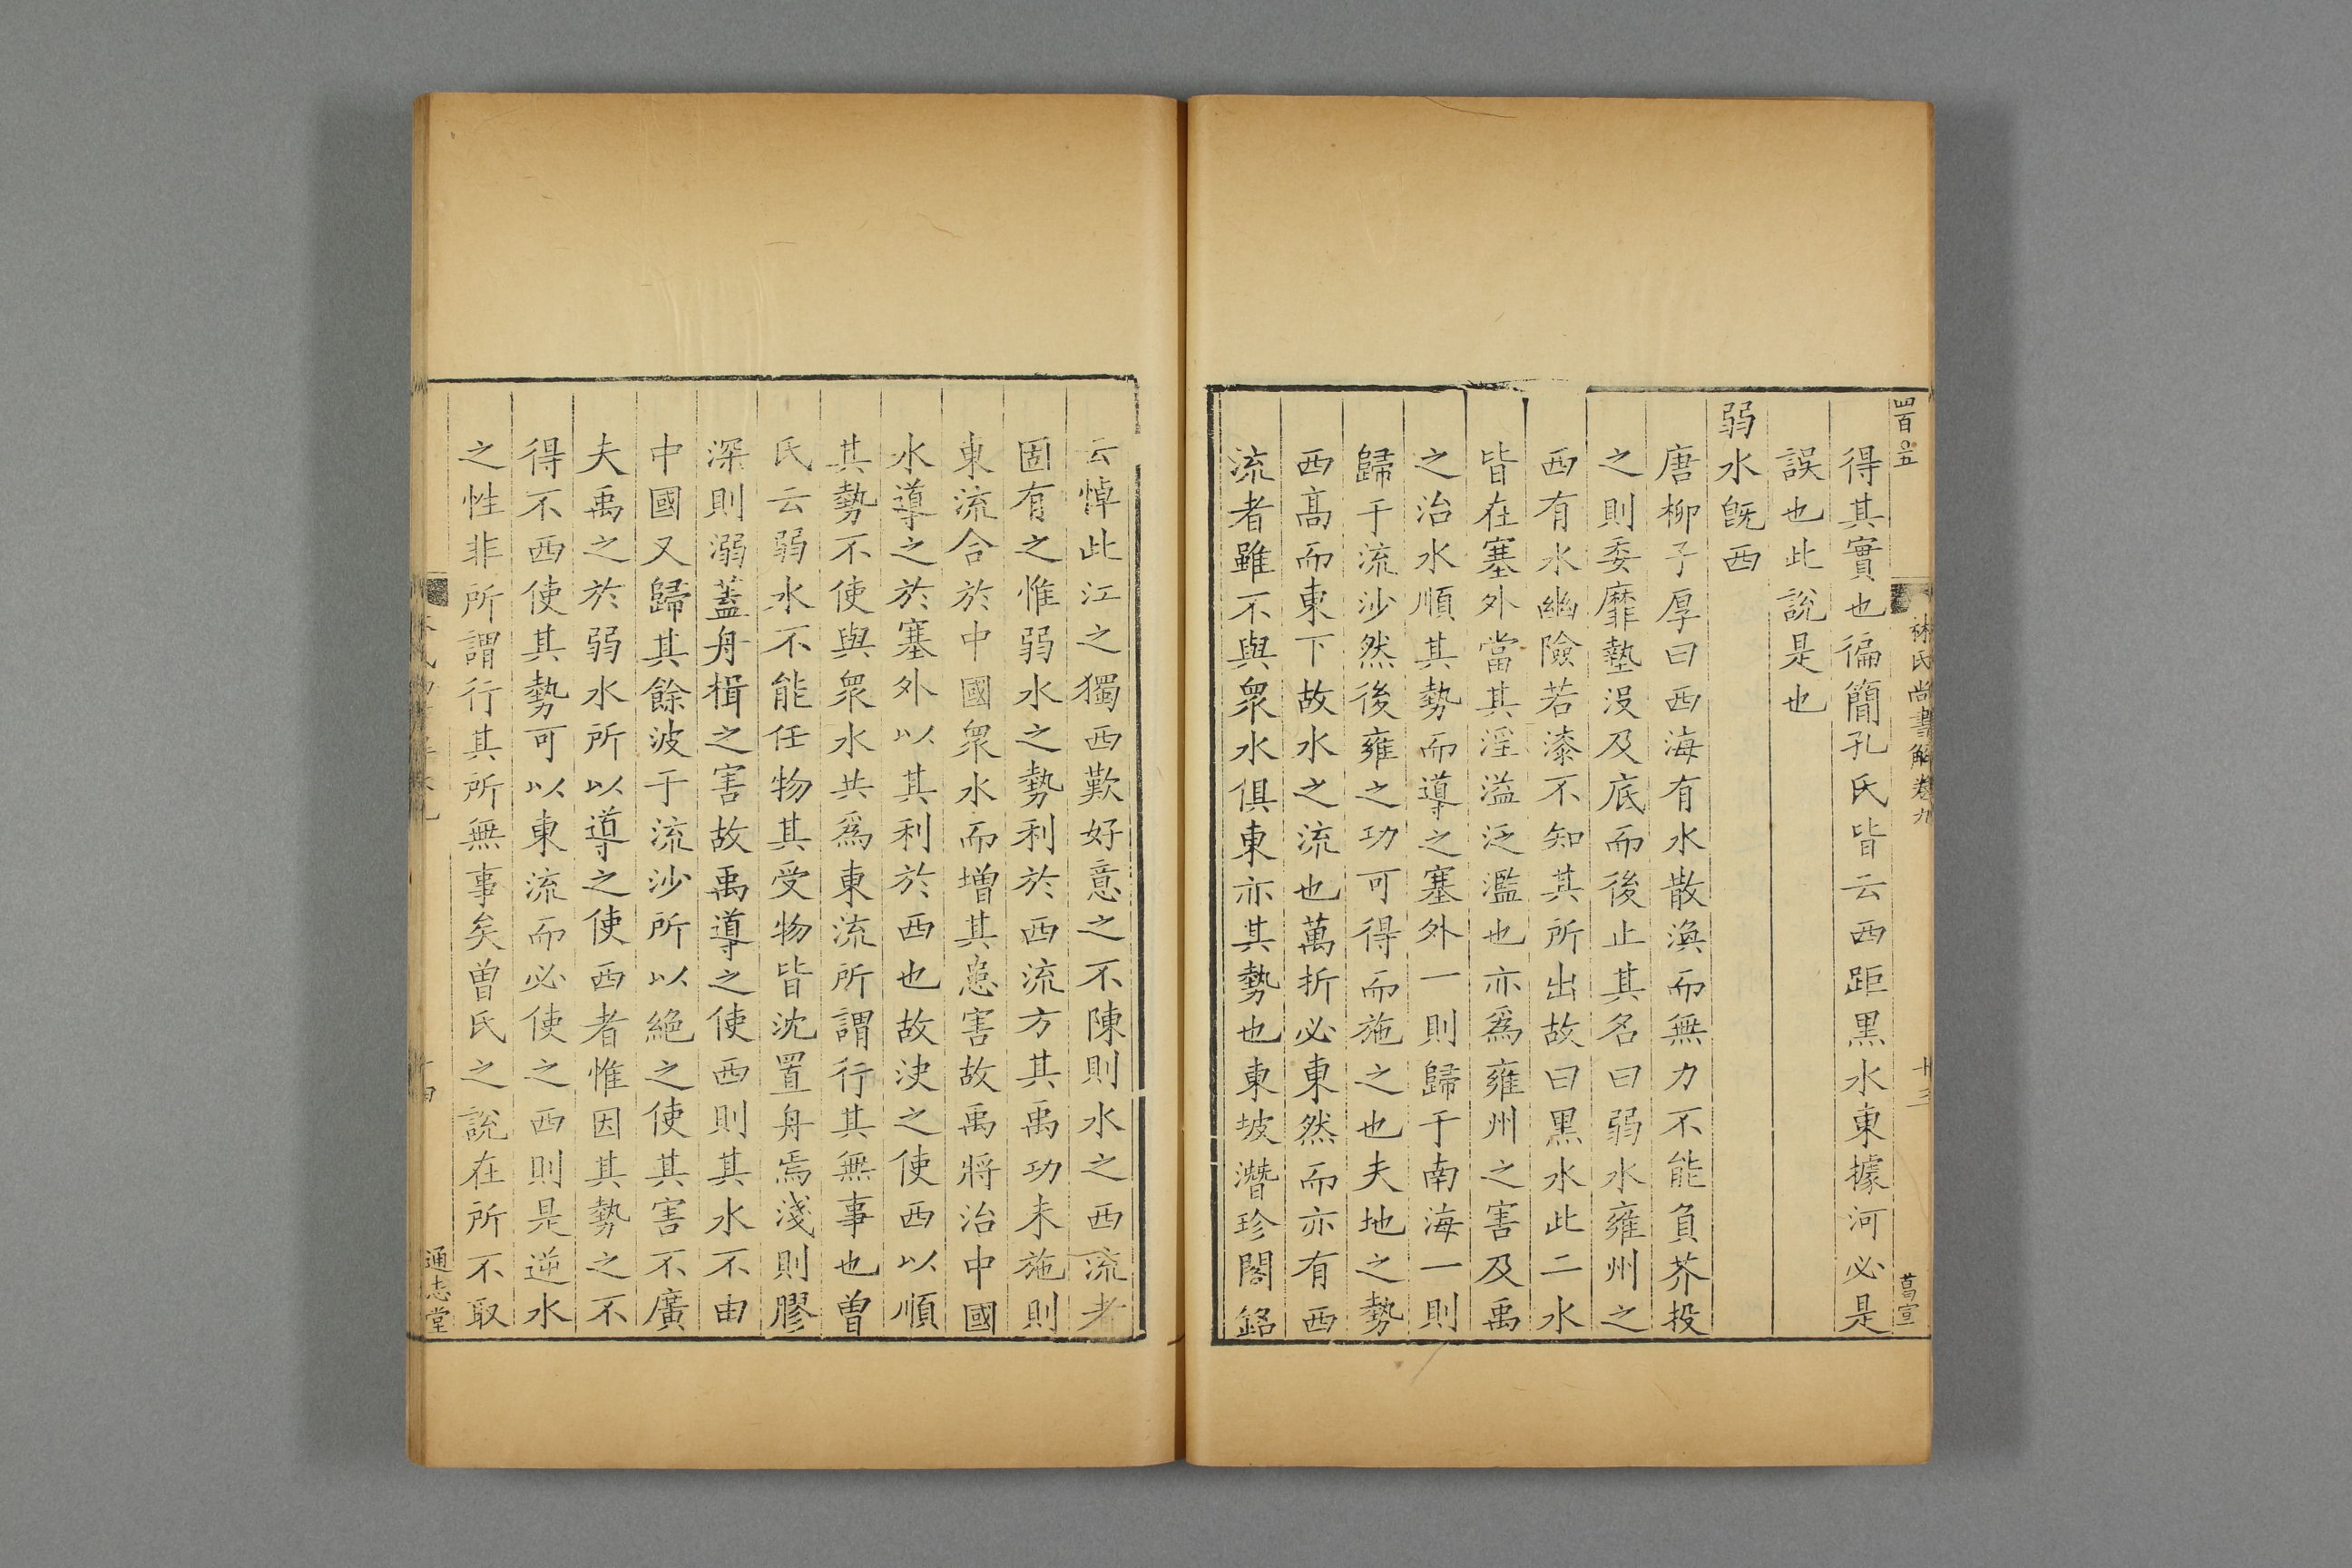 四百五
林氏尚書解卷九
十三
葛宣
得其實也徧簡孔氏皆云西距黒水東據河必是
誤也此說是也
弱水旣西
唐柳子厚曰西海有水散渙而無力不能負芥投
之則委靡墊没及底而後止其名曰弱水雍州之
西有水幽險若漆不知其所出故曰黒水此二水
皆在塞外當其淫溢泛濫也亦爲雍州之害及禹
之治水順其勢而導之塞外一則歸于南海一則
歸于流沙然後雍之功可得而施之也夫地之勢
西髙而東下故水之流也萬折必東然而亦有西
流者雖不與衆水俱東亦其勢也東坡濳珍閣銘
云悼此江之獨西歎妤意之不陳則水之西流者
固有之惟弱水之勢利於西流方其禹功未施則
東流合於中國衆水而増其患害故禹將治中國
水導之於塞外以其利於西也故决之使西以順
其勢不使與衆水共爲東流所謂行其無事也曾
氏云弱水不能任物其受物皆沈置舟焉淺則膠
深則溺蓋舟楫之害故禹導之使西則其水不由
中國又歸其餘波于流沙所以絶之使其害不廣
夫禹之於弱水所以導之使西者惟因其勢之不
得不西使其勢可以東流而必使之西則是逆水
之性非所謂行其所無事矣曾氏之說在所不取
通志堂